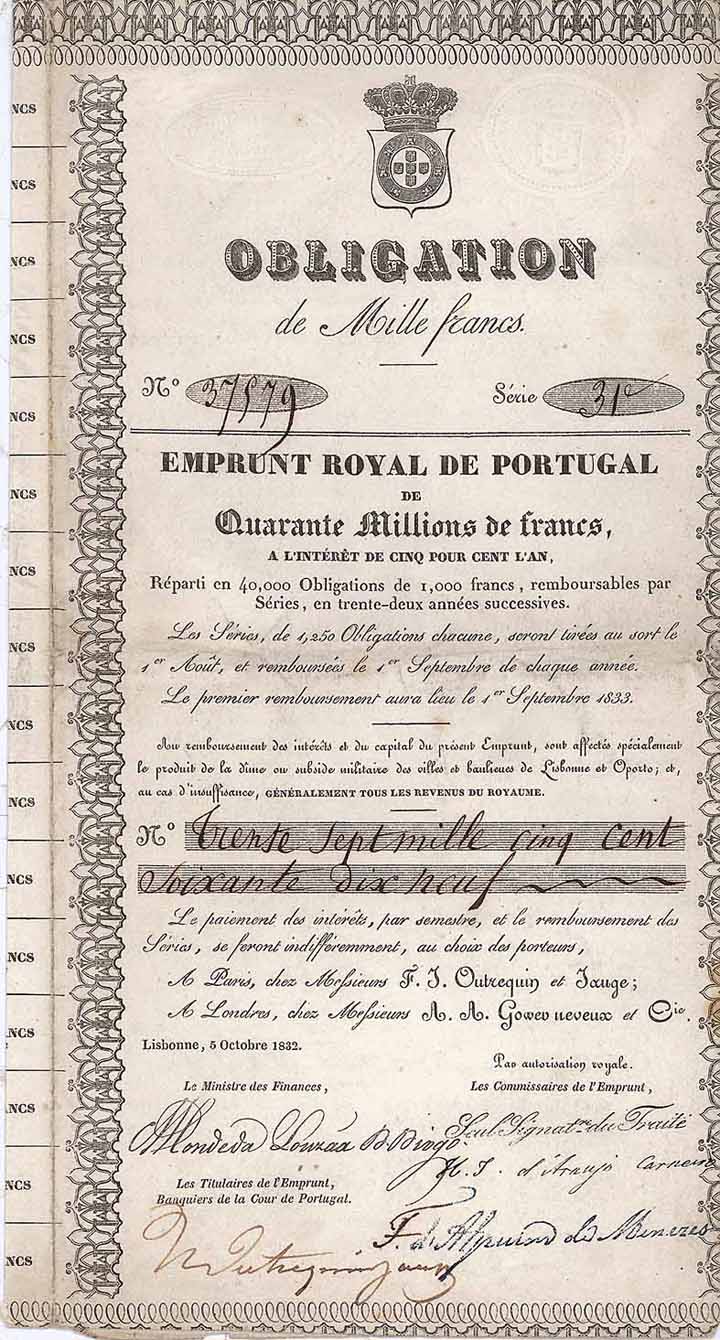 OBLIGATION
de Mille francs.
N° 37579 Série 31e
EMPRUNT ROYAL DE PORTUGAL
DE
Quarante Millions de francs,
A L'INTÉRÊT DE CINQ POUR CENT L'AN,
Réparti en 40,000 Obligations de 1,000 francs, remboursables par
Séries, en trente-deux années successives.
Les Séries, de 1,250 Obligations chacune, seront tirées au sort le
1er Août, et remboursées le 1er Septembre de chaque année.
Le premier remboursement aura lieu le 1er Septembre 1833.
Au remboursement des intérêts et du capital du présent Emprunt, sont affectés spécialement
le produit de la dîme ou subside militaire des villes et banlieues de Lisbonne et Oporto; et,
au cas d'insuffisance, GÉNÉRALEMENT TOUS LES REVENUS DU ROYAUME.
N° Trente Sept mille cinq cent
Soixante dix neuf
Le paiement des intérêts, par semestre, et le remboursement des
Séries, se feront indifféremment, au choix des porteurs,
A Paris, chez Messieurs F. J. Outrequin et Jauge;
A Londres, chez Messieurs A. A. Gower neveux et Cie.
Lisbonne, 5 Octobre 1832.
Par autorisation royale.
Le Ministre des Finances, Les Commissaires de l'Emprunt,
Seul Signatre du Traité
H. J. d'Araujo Carneiro
Les Titulaires de l'Emprunt,
Banquiers de la Cour de Portugal.
F. d'Alpuim de Menezes
NCS
NCS
NCS
NCS
NCS
NCS
NCS
NCS
NCS
NCS
NCS
NCS
NCS
NCS
NCS
NCS